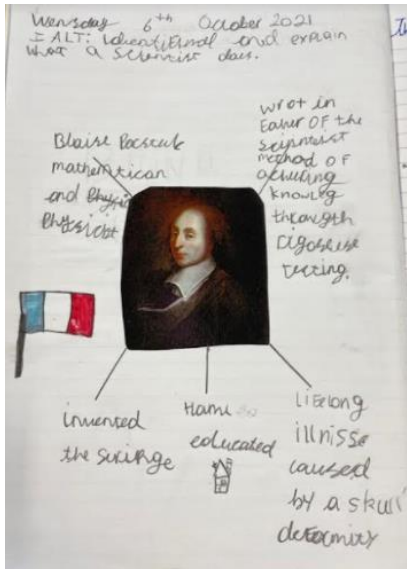 Wensday 6th October 2021
I ALT: identifi and explain
what a scientist does.
Blaise Pascale
mathmatican
and Physi
Physicist
wrot in
OF the
scientist
method OF
knowing
through
testing.
invented
the
Home
educated
LiFelong
illnisse
caused
by a skull
deformity